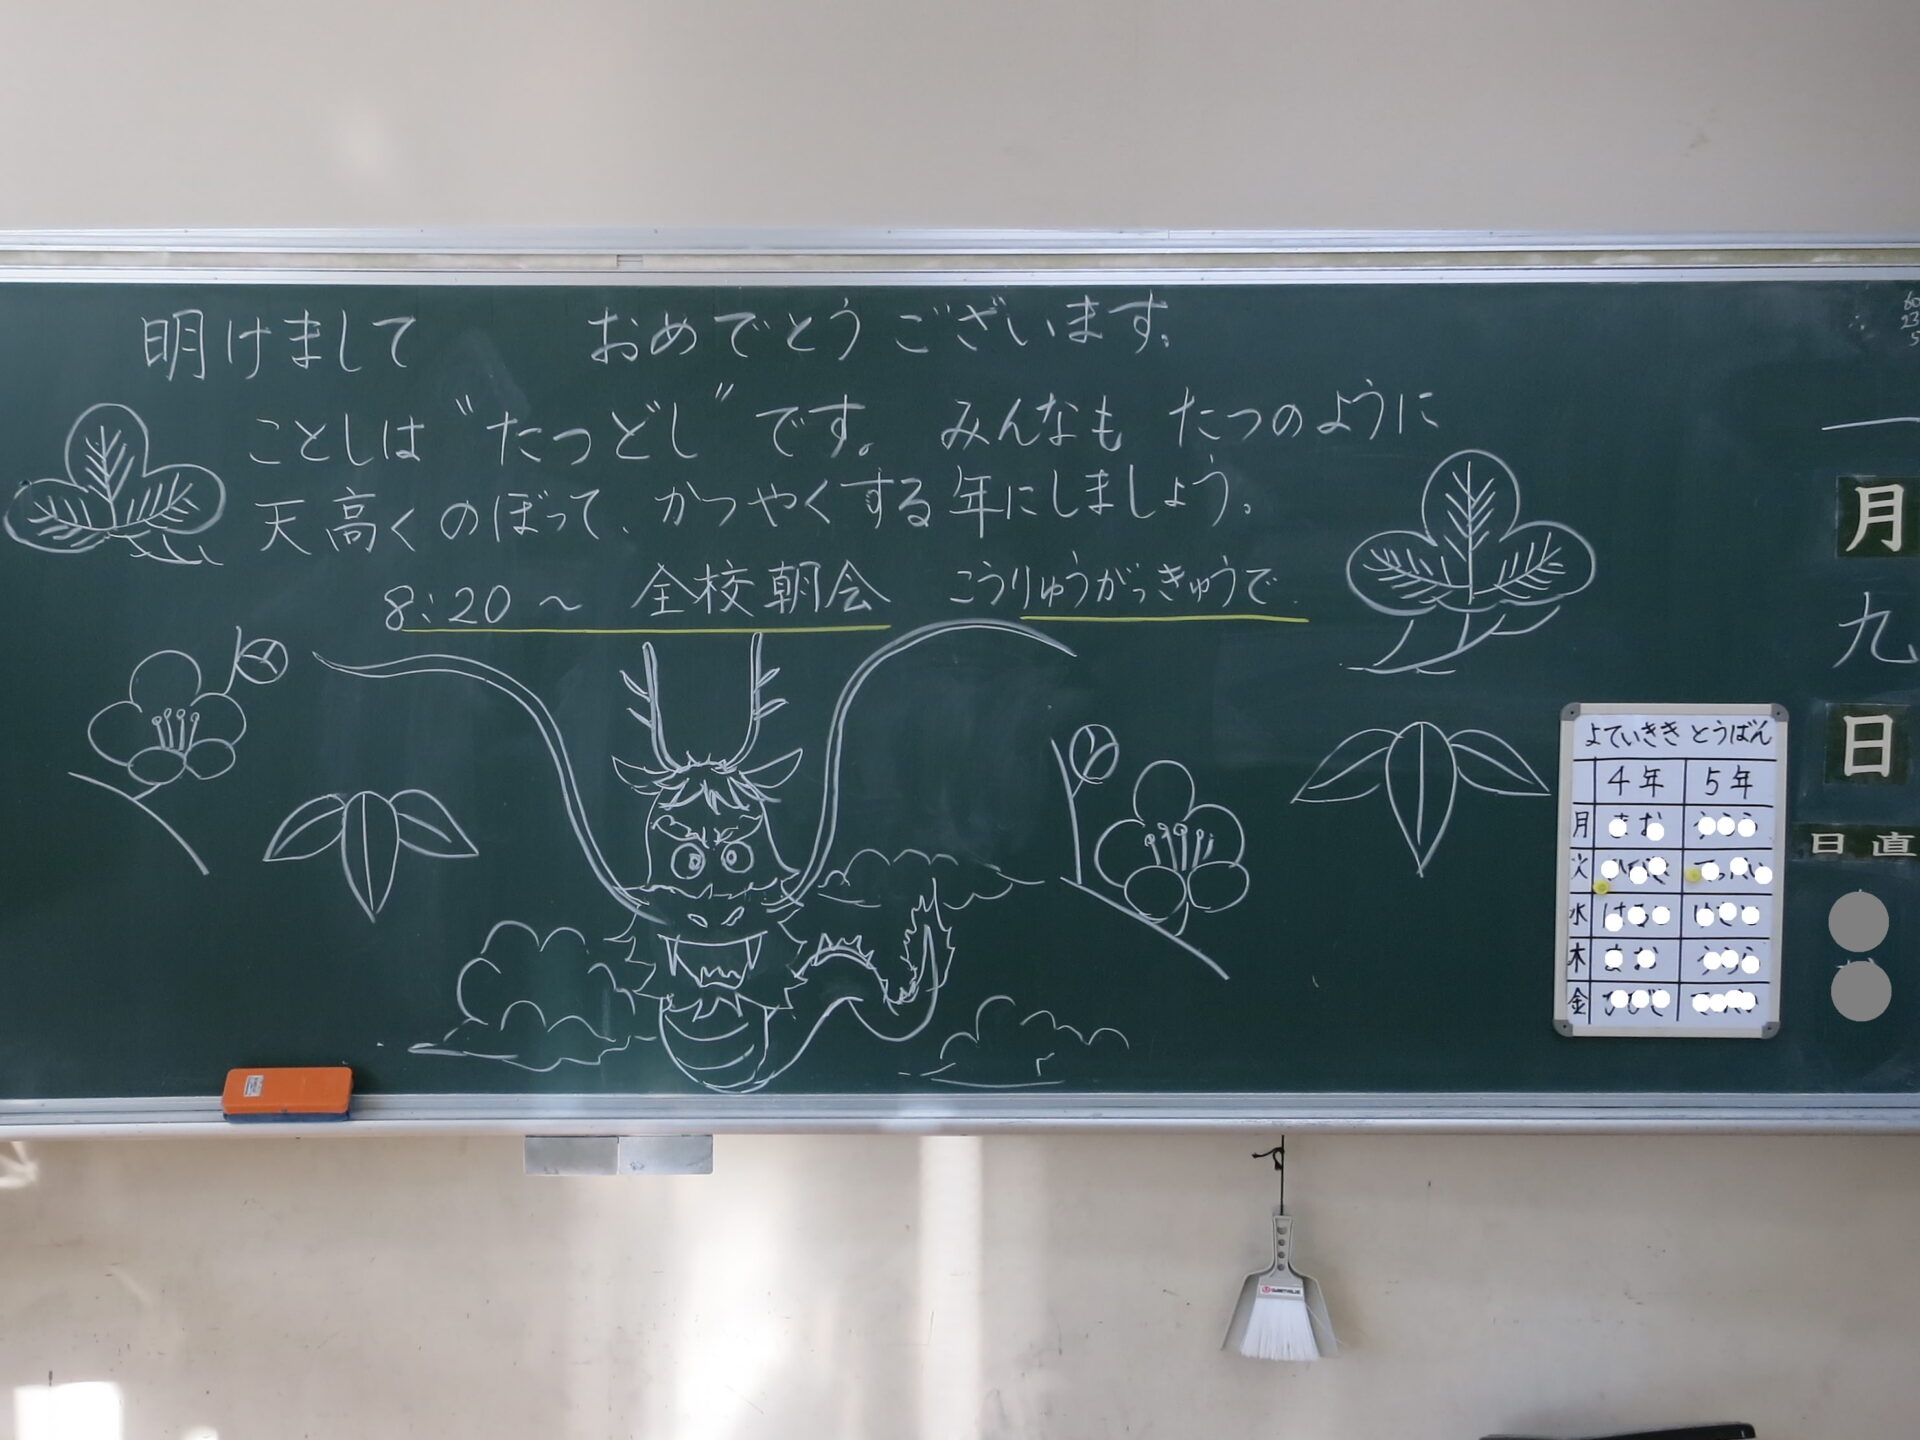 明けまして おめでとうございます。
ことしは"たつどし"です。 みんなも たつのように
天高くのぼって、かつやくする年にしましょう。
8:20〜 全校朝会 こうりゅうがっきゅうで
一
月
九
日
日直
よていきき とうばん
4年 5年
月
火
水
木
金